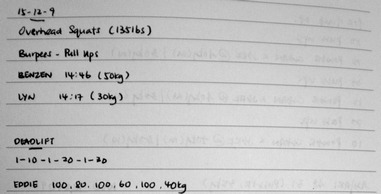 15-12-9
Overhead Squats (135lbs)
Burpees - Pull Ups
BENZEN 14:46 (50kg)
LYN 14:17 (30kg)
DEADLIFT
1-10-1-20-1-30
EDDIE 100, 80, 100, 60, 100, 40kg